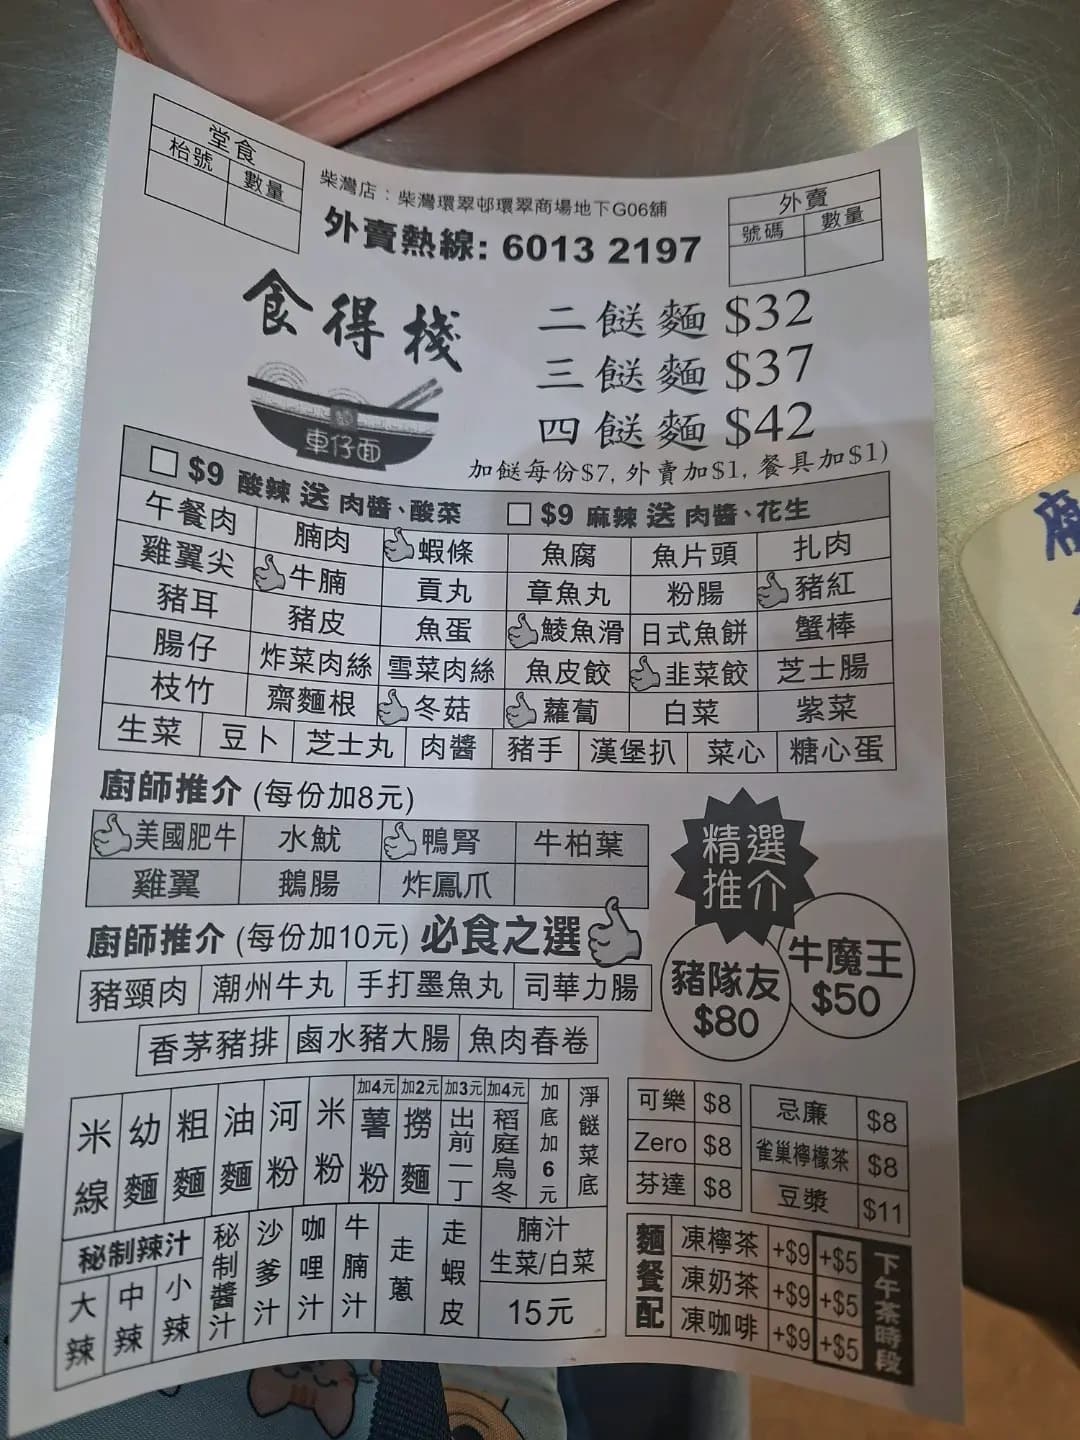 堂食
枱號 數量
柴灣店：柴灣環翠邨環翠商場地下G06舖
外賣熱線: 6013 2197
外賣
號碼 數量
食得棧
車仔面
二餸麵 $32
三餸麵 $37
四餸麵 $42
加餸每份$7, 外賣加$1, 餐具加$1)
□ $9 酸辣 送 肉醬、酸菜 □ $9 麻辣 送 肉醬、花生
午餐肉 腩肉 蝦條 魚腐 魚片頭 扎肉
雞翼尖 牛腩 貢丸 章魚丸 粉腸 豬紅
豬耳 豬皮 魚蛋 鯪魚滑 日式魚餅 蟹棒
腸仔 炸菜肉絲 雪菜肉絲 魚皮餃 韭菜餃 芝士腸
枝竹 齋麵根 冬菇 蘿蔔 白菜 紫菜
生菜 豆卜 芝士丸 肉醬 豬手 漢堡扒 菜心 糖心蛋
廚師推介 (每份加8元)
美國肥牛 水魷 鴨腎 牛柏葉
雞翼 鵝腸 炸鳳爪
廚師推介 (每份加10元) 必食之選
豬頸肉 潮州牛丸 手打墨魚丸 司華力腸
香茅豬排 鹵水豬大腸 魚肉春卷
精選
推介
豬隊友
$80
牛魔王
$50
米線 幼麵 粗麵 油麵 河粉 米粉 加4元 薯粉 加2元 撈麵 加3元 出前一丁 加4元 稻庭烏冬 加底加6元 淨餸菜底
秘制辣汁
大辣 中辣 小辣 秘制醬汁 沙爹汁 咖哩汁 牛腩汁 走蔥 走蝦皮
腩汁
生菜/白菜
15元
可樂 $8
Zero $8
芬達 $8
忌廉 $8
雀巢檸檬茶 $8
豆漿 $11
麵餐配
凍檸茶 +$9 +$5
凍奶茶 +$9 +$5
凍咖啡 +$9 +$5
下午茶時段